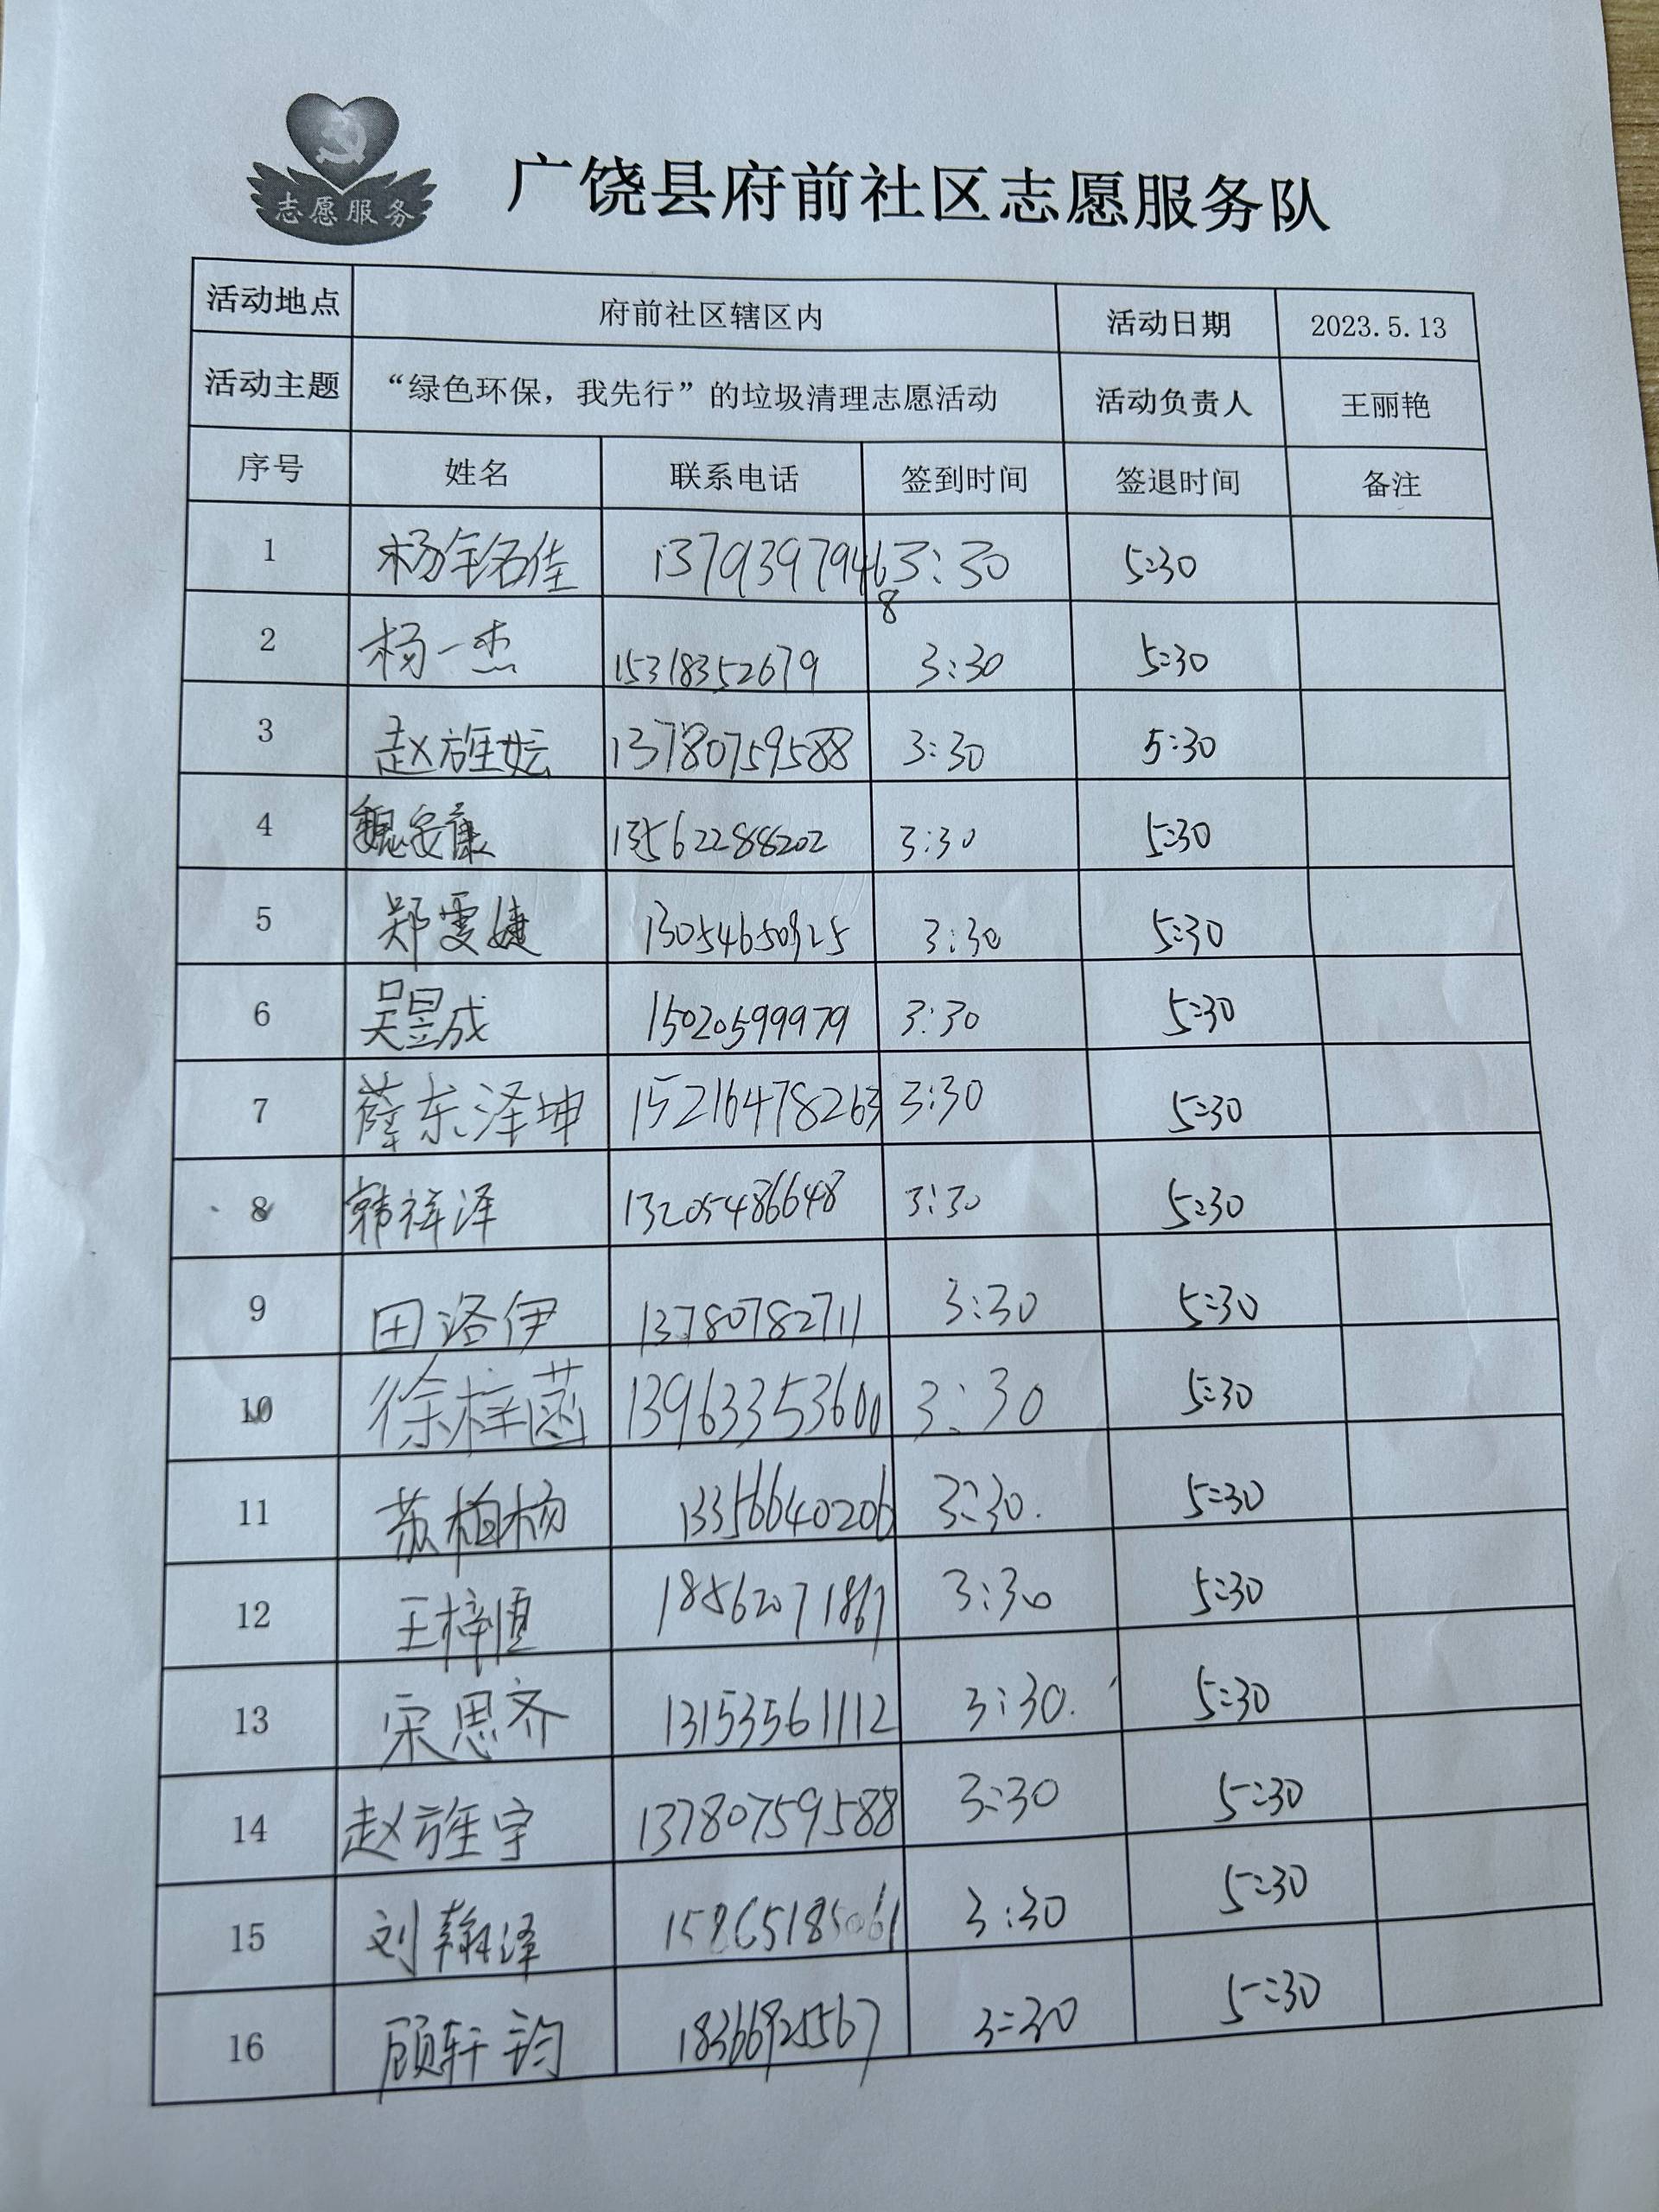 志愿服务
广饶县府前社区志愿服务队
活动地点 府前社区辖区内 活动日期 2023.5.13
活动主题 “绿色环保，我先行”的垃圾清理志愿活动 活动负责人 王丽艳
序号 姓名 联系电话 签到时间 签退时间 备注
1 杨铭佳 13793979468 3:30 5:30
2 杨一杰 15318352679 3:30 5:30
3 赵旌妘 13780759588 3:30 5:30
4 魏安康 13562288202 3:30 5:30
5 郑雯婕 13054650925 3:30 5:30
6 吴昱成 15020599979 3:30 5:30
7 薛东泽坤 15216478263 3:30 5:30
8 韩祥泽 13205486648 3:30 5:30
9 田洛伊 13780782711 3:30 5:30
10 徐梓菡 13963353600 3:30 5:30
11 苏柏杨 13356640206 3:30. 5:30
12 王梓恒 18562071867 3:30 5:30
13 宋思齐 13153561112 3:30. 5:30
14 赵旌宇 13780759588 3:30 5:30
15 刘翰泽 15865185061 3:30 5:30
16 顾轩钧 3:30 5:30